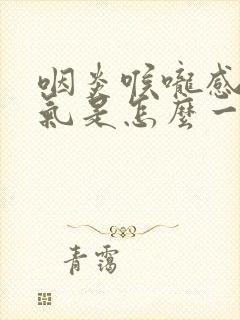 咽炎喉嚨感
氣是怎麼一
青靄